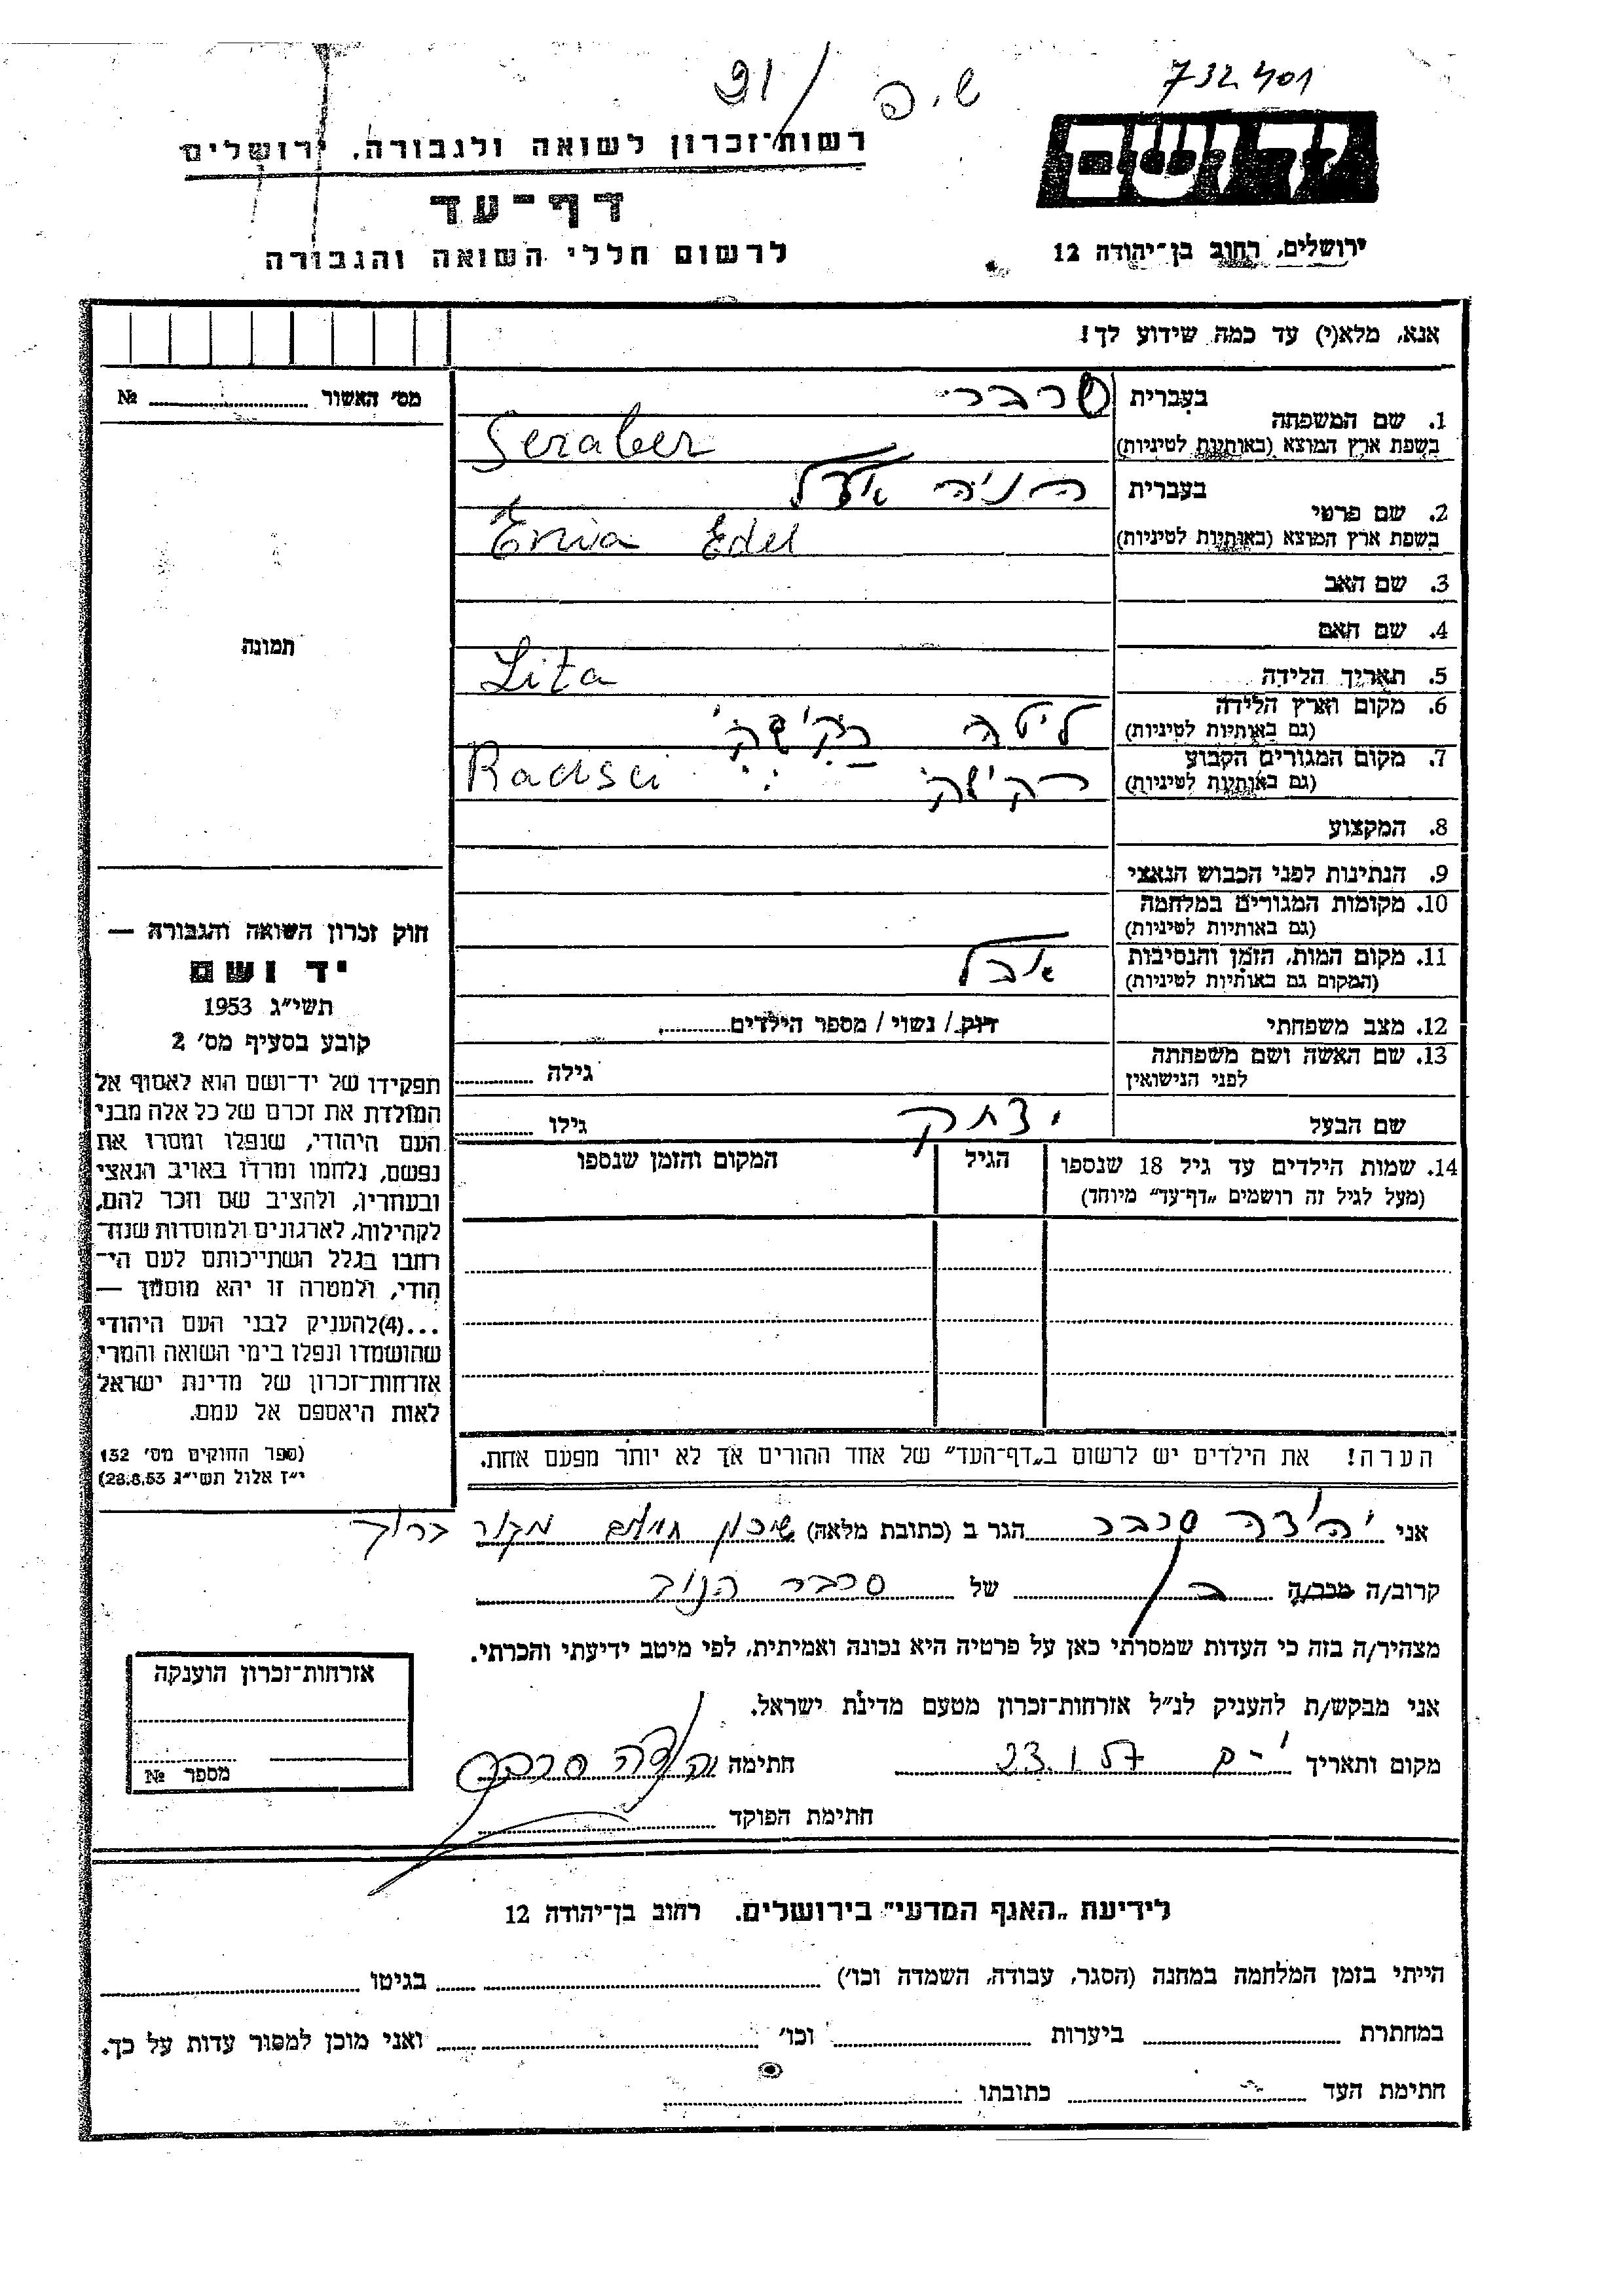 732401
ש.פ / 91
יד ושם
ירושלים, רחוב בן־יהודה 12
רשות־זכרון לשואה ולגבורה, ירושלים
דף־עד
לרשום חללי השואה והגבורה
אנא, מלא(י) עד כמה שידוע לך!
מס׳ האשור № 
1. שם המשפחה
בעברית שרבר
בשפת ארץ המוצא (באותיות לטיניות) Seraber
2. שם פרטי
בעברית הניה אידל
בשפת ארץ המוצא (באותיות לטיניות) Enia Edel
3. שם האב
4. שם האם
5. תאריך הלידה Lita
6. מקום וארץ הלידה ליטה
(גם באותיות לטיניות)
7. מקום המגורים הקבוע
(גם באותיות לטיניות)
8. המקצוע
9. הנתינות לפני הכבוש הנאצי
10. מקומות המגורים במלחמה
(גם באותיות לטיניות)
11. מקום המות, הזמן והנסיבות
(המקום גם באותיות לטיניות)
12. מצב משפחתי רוק / נשוי / מספר הילדים
13. שם האשה ושם משפחתה גילה
לפני הנישואין
שם הבעל יצחק גילו
14. שמות הילדים עד גיל 18 שנספו הגיל המקום והזמן שנספו
(מעל לגיל זה רושמים „דף־עד״ מיוחד)
הערה! את הילדים יש לרשום ב„דף־העד״ של אחד ההורים אך לא יותר מפעם אחת.
תמונה
חוק זכרון השואה והגבורה —
יד ושם
תשי״ג 1953
קובע בסעיף מס׳ 2
תפקידו של יד־ושם הוא לאסוף אל
המולדת את זכרם של כל אלה מבני
העם היהודי, שנפלו ומסרו את
נפשם, נלחמו ומרדו באויב הנאצי
ובעוזריו, ולהציב שם וזכר להם,
לקהילות, לארגונים ולמוסדות שנח־
רבו בגלל השתייכותם לעם הי־
הודי, ולמטרה זו יהא מוסמך —
...(4) להעניק לבני העם היהודי
שהושמדו ונפלו בימי השואה והמרי
אזרחות־זכרון של מדינת ישראל
לאות היאספם אל עמם.
(ספר החוקים מס׳ 132
י״ז אלול תשי״ג 28.8.53)
אני יהודה סרבר הגר ב (כתובת מלאה) שיכון מקור ברוך
קרוב/ה מכר/ה בן של סרבר
מצהיר/ה בזה כי העדות שמסרתי כאן על פרטיה היא נכונה ואמיתית, לפי מיטב ידיעתי והכרתי.
אני מבקש/ת להעניק לנ״ל אזרחות־זכרון מטעם מדינת ישראל.
מקום ותאריך י-ם 23.1.57 חתימה יהודה סרבר
חתימת הפוקד
אזרחות־זכרון הוענקה
מספר №
לידיעת „האגף המדעי״ בירושלים, רחוב בן־יהודה 12
הייתי בזמן המלחמה במחנה (הסגר, עבודה, השמדה וכו׳) בגיטו
במחתרת ביערות וכו׳ ואני מוכן למסור עדות על כך.
חתימת העד כתובתו